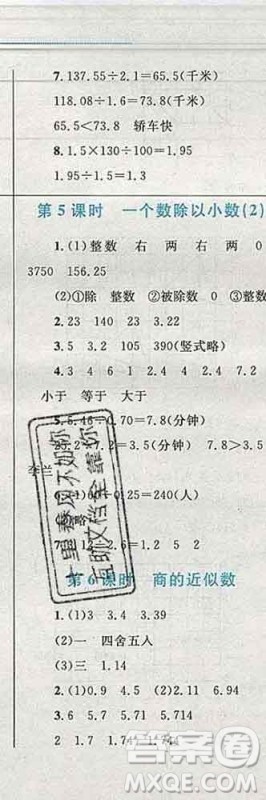 7. 137.55÷2.1=65.5(千米)
118.08÷1.6=73.8(千米)
65.5<73.8 轿车快
8. 1.5×130÷100=1.95
1.95÷1.5=1.3
第5课时 一个数除以小数(2)
1. (1)整数 右 两 右 两 0
3750 156.25
(2)①除 整数 ②被除数 0 ③整数
2. 23 140 23 3.22
3. 5 3.2 105 390(竖式略)
4. 3 4 1 2 4 1 6 1
小于 等于 大于
5. 5.46÷0.70=7.8(分钟)
÷7.2=3.5(分钟) 7.8>3.5
李兰
÷0.25=240(人)
2.6=1.2 5 2
第6课时 商的近似数
1. (1)3 3.4 3.39
(2)一 四舍五人
(3)三 1.14
2. (1)0.9 4.5 (2)2.11 6.94
3. 6 5.7 5.71 5.714
2 1.7 1.74 1.744
十里春风不如你
互助文档全靠你
答案圈
MXQE.COM